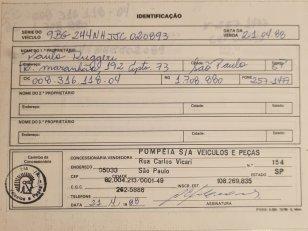 IDENTIFICAÇÃO
SÉRIE DO VEÍCULO 9BG-244NHJJC020893 DATA DA VENDA 21.04.88
NOME DO 1.º PROPRIETÁRIO
Paulo Ruggeri
R. maranhão 192 Cpto. 73 São Paulo
008.316.118-04 RG 1.708.880 FONE: 257-1477
NOME DO 2.º PROPRIETÁRIO
Endereço: Cidade: Estado:
NOME DO 3.º PROPRIETÁRIO
Endereço: Cidade: Estado:
Carimbo da Concessionária
CONCESSIONÁRIA VENDEDORA POMPÉIA S/A VEICULOS E PEÇAS
ENDEREÇO Rua Carlos Vicari N.º 154
05033 São Paulo ESTADO SP
C.G.C. 62.004.213/0001-49 INSCR. EST. 108.269.835
TELEFONE 262-5888
DATA ASSINATURA